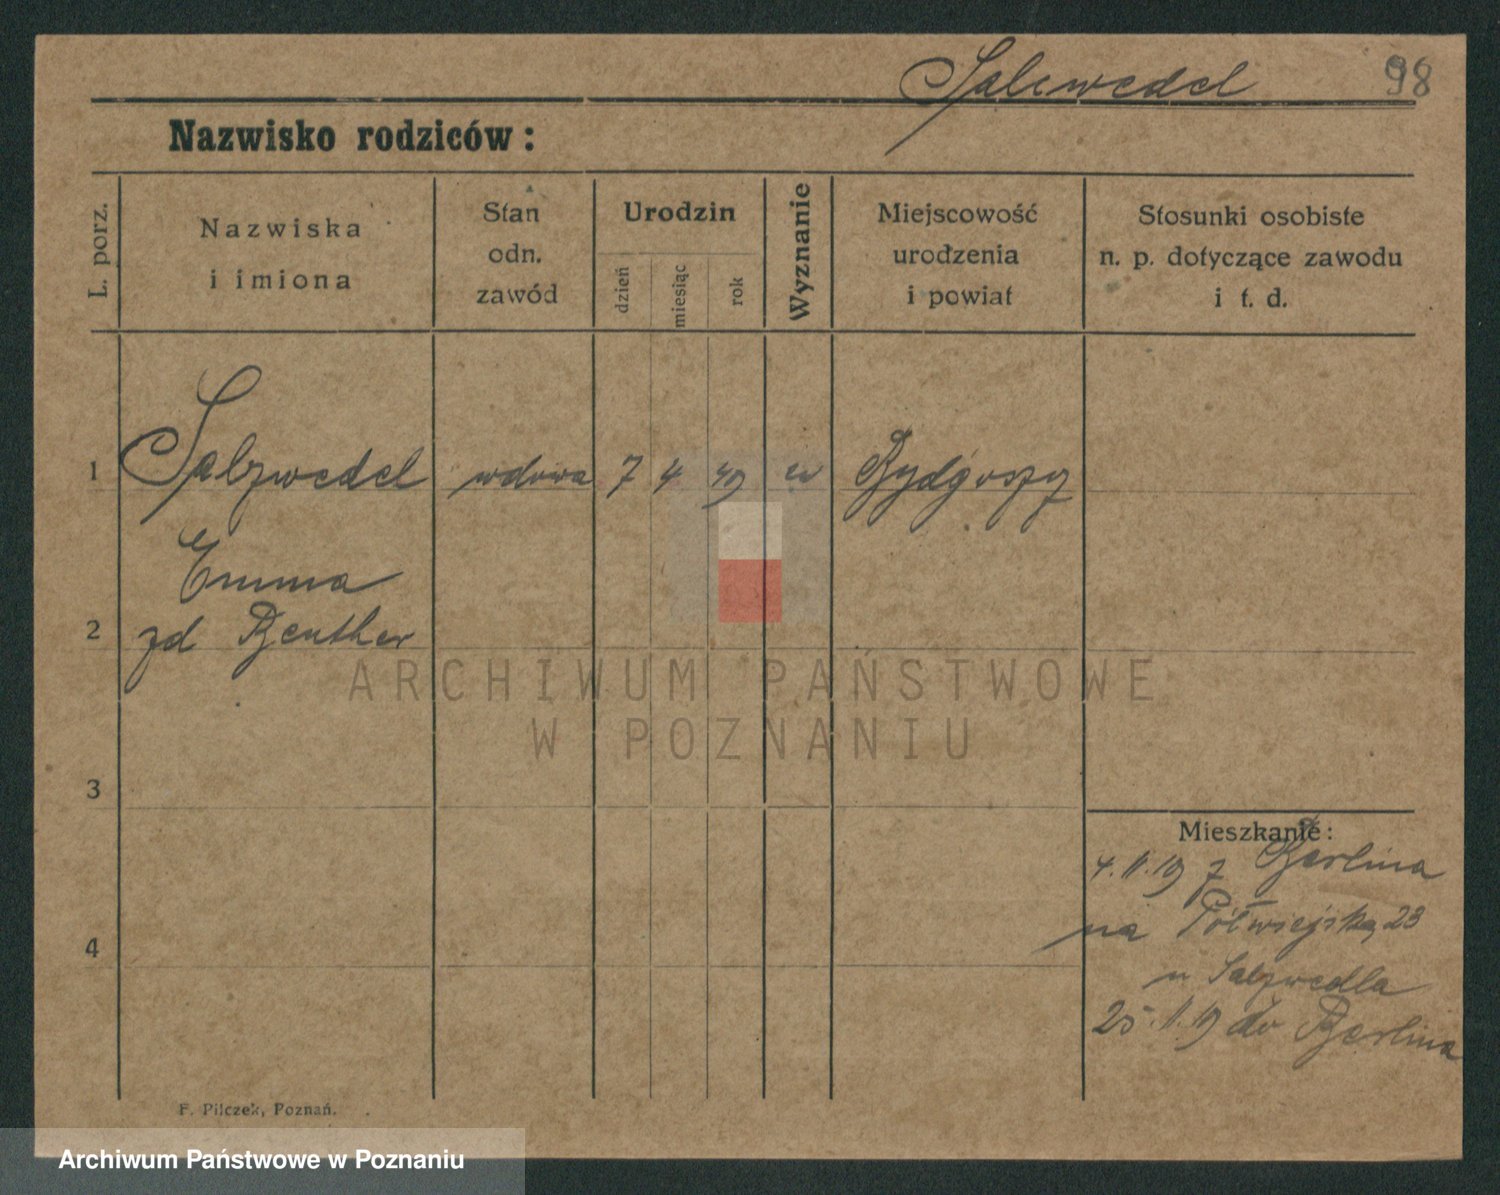 Salzwedel 98
Nazwisko rodziców:
L. porz.
Nazwiska
i imiona
Stan
odn.
zawód
Urodzin
dzień
miesiąc
rok
Wyznanie
Miejscowość
urodzenia
i powiat
Stosunki osobiste
n. p. dotyczące zawodu
i t. d.
1 Salzwedel wdowa 7 4 49 ew Bydgoszy
Emma
2 zd Beuther
ARCHIWUM PAŃSTWOWE
W POZNANIU
3
Mieszkanie:
4.11.19 z Berlina
na Półwiejską 23
4
u Salzwedla
25.11.19 do Berlina
F. Pilczek, Poznań.
Archiwum Państwowe w Poznaniu